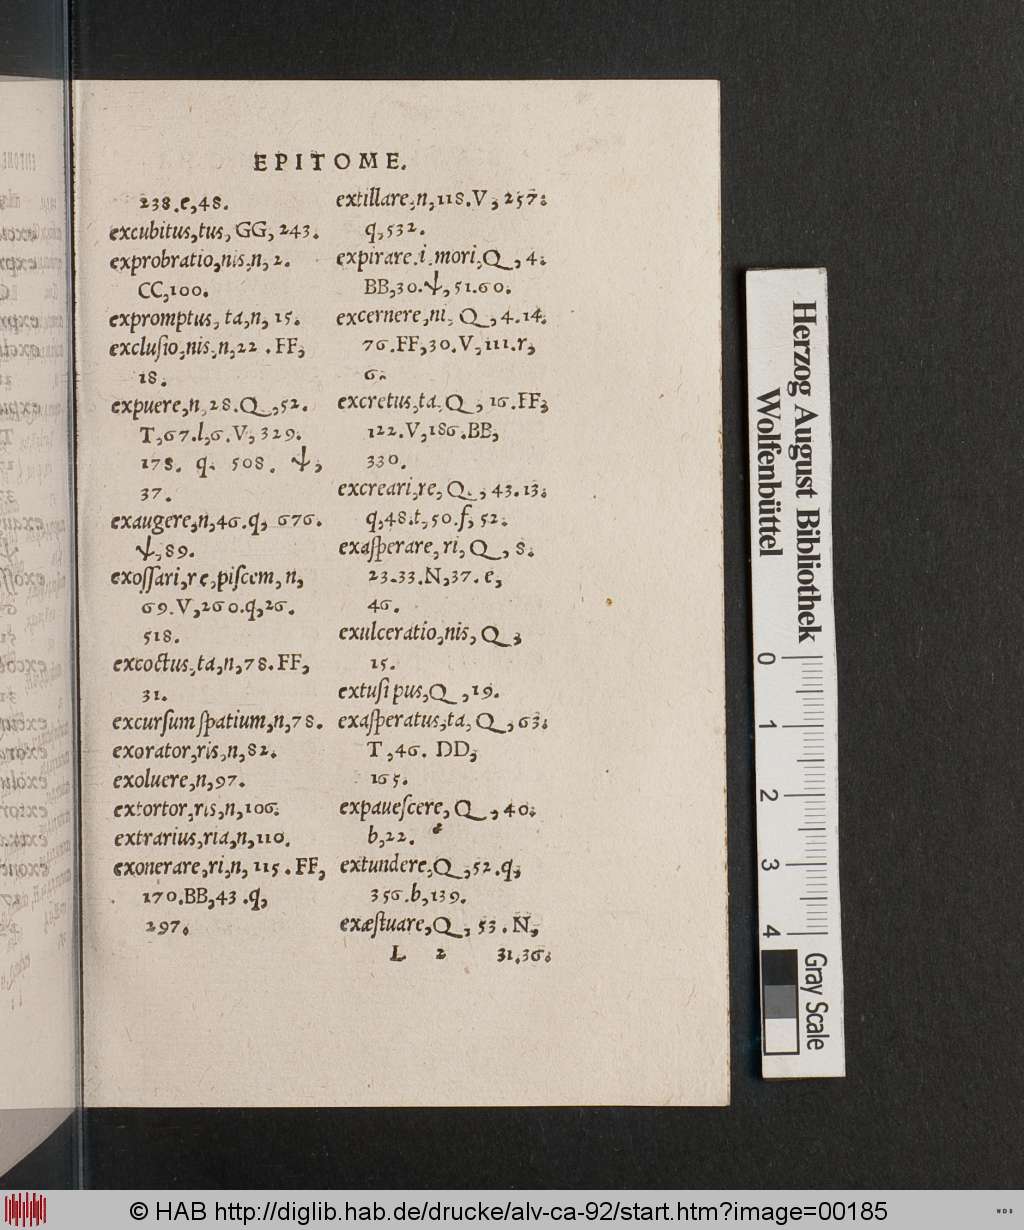 EPITOME.
238.e,48.
excubitus,tus, GG, 243.
exprobratio,nis,n, 2.
CC,100.
expromptus, ta,n, 15.
excluſio,nis,n,22 . FF,
18.
expuere,n,28.Q ,52.
T,67.l,6.V, 329.
178. q. 508. ψ,
37.
exaugere,n,46.q, 676.
ψ,89.
exoſſari,re,piſcem, n,
69.V,260.q,26.
518.
excoctus,ta,n,78.FF,
31.
excurſum ſpatium,n,78.
exorator,ris,n,82.
exoluere,n,97.
extortor,ris,n,106.
extrarius,ria,n,110.
exonerare,ri,n, 115 . FF,
170.BB,43 .q,
297.
extillare,n,118.V , 257.
q,532.
expirare.i.mori,Q , 4.
BB,30.ψ, 51.60.
excernere,ni, Q , 4.14.
76.FF,30.V,111.r,
6.
excretus,ta,Q , 16.FF,
122.V,186.BB,
330.
excreari,re, Q. , 43.13.
q,48.t,50.f, 52.
exaſperare, ri, Q , 8.
23.33.N,37. e,
46.
exulceratio,nis, Q ,
15.
extuſi pus,Q , 19.
exaſperatus,ta, Q , 63.
T ,46. DD,
165.
expaueſcere, Q , 40.
b,22.
extundere,Q ,52.q,
356.b,139.
exæſtuare,Q , 53 . N,
L 2 31.36.
Herzog August Bibliothek
Wolfenbüttel
0 1 2 3 4
Gray Scale
© HAB http://diglib.hab.de/drucke/alv-ca-92/start.htm?image=00185